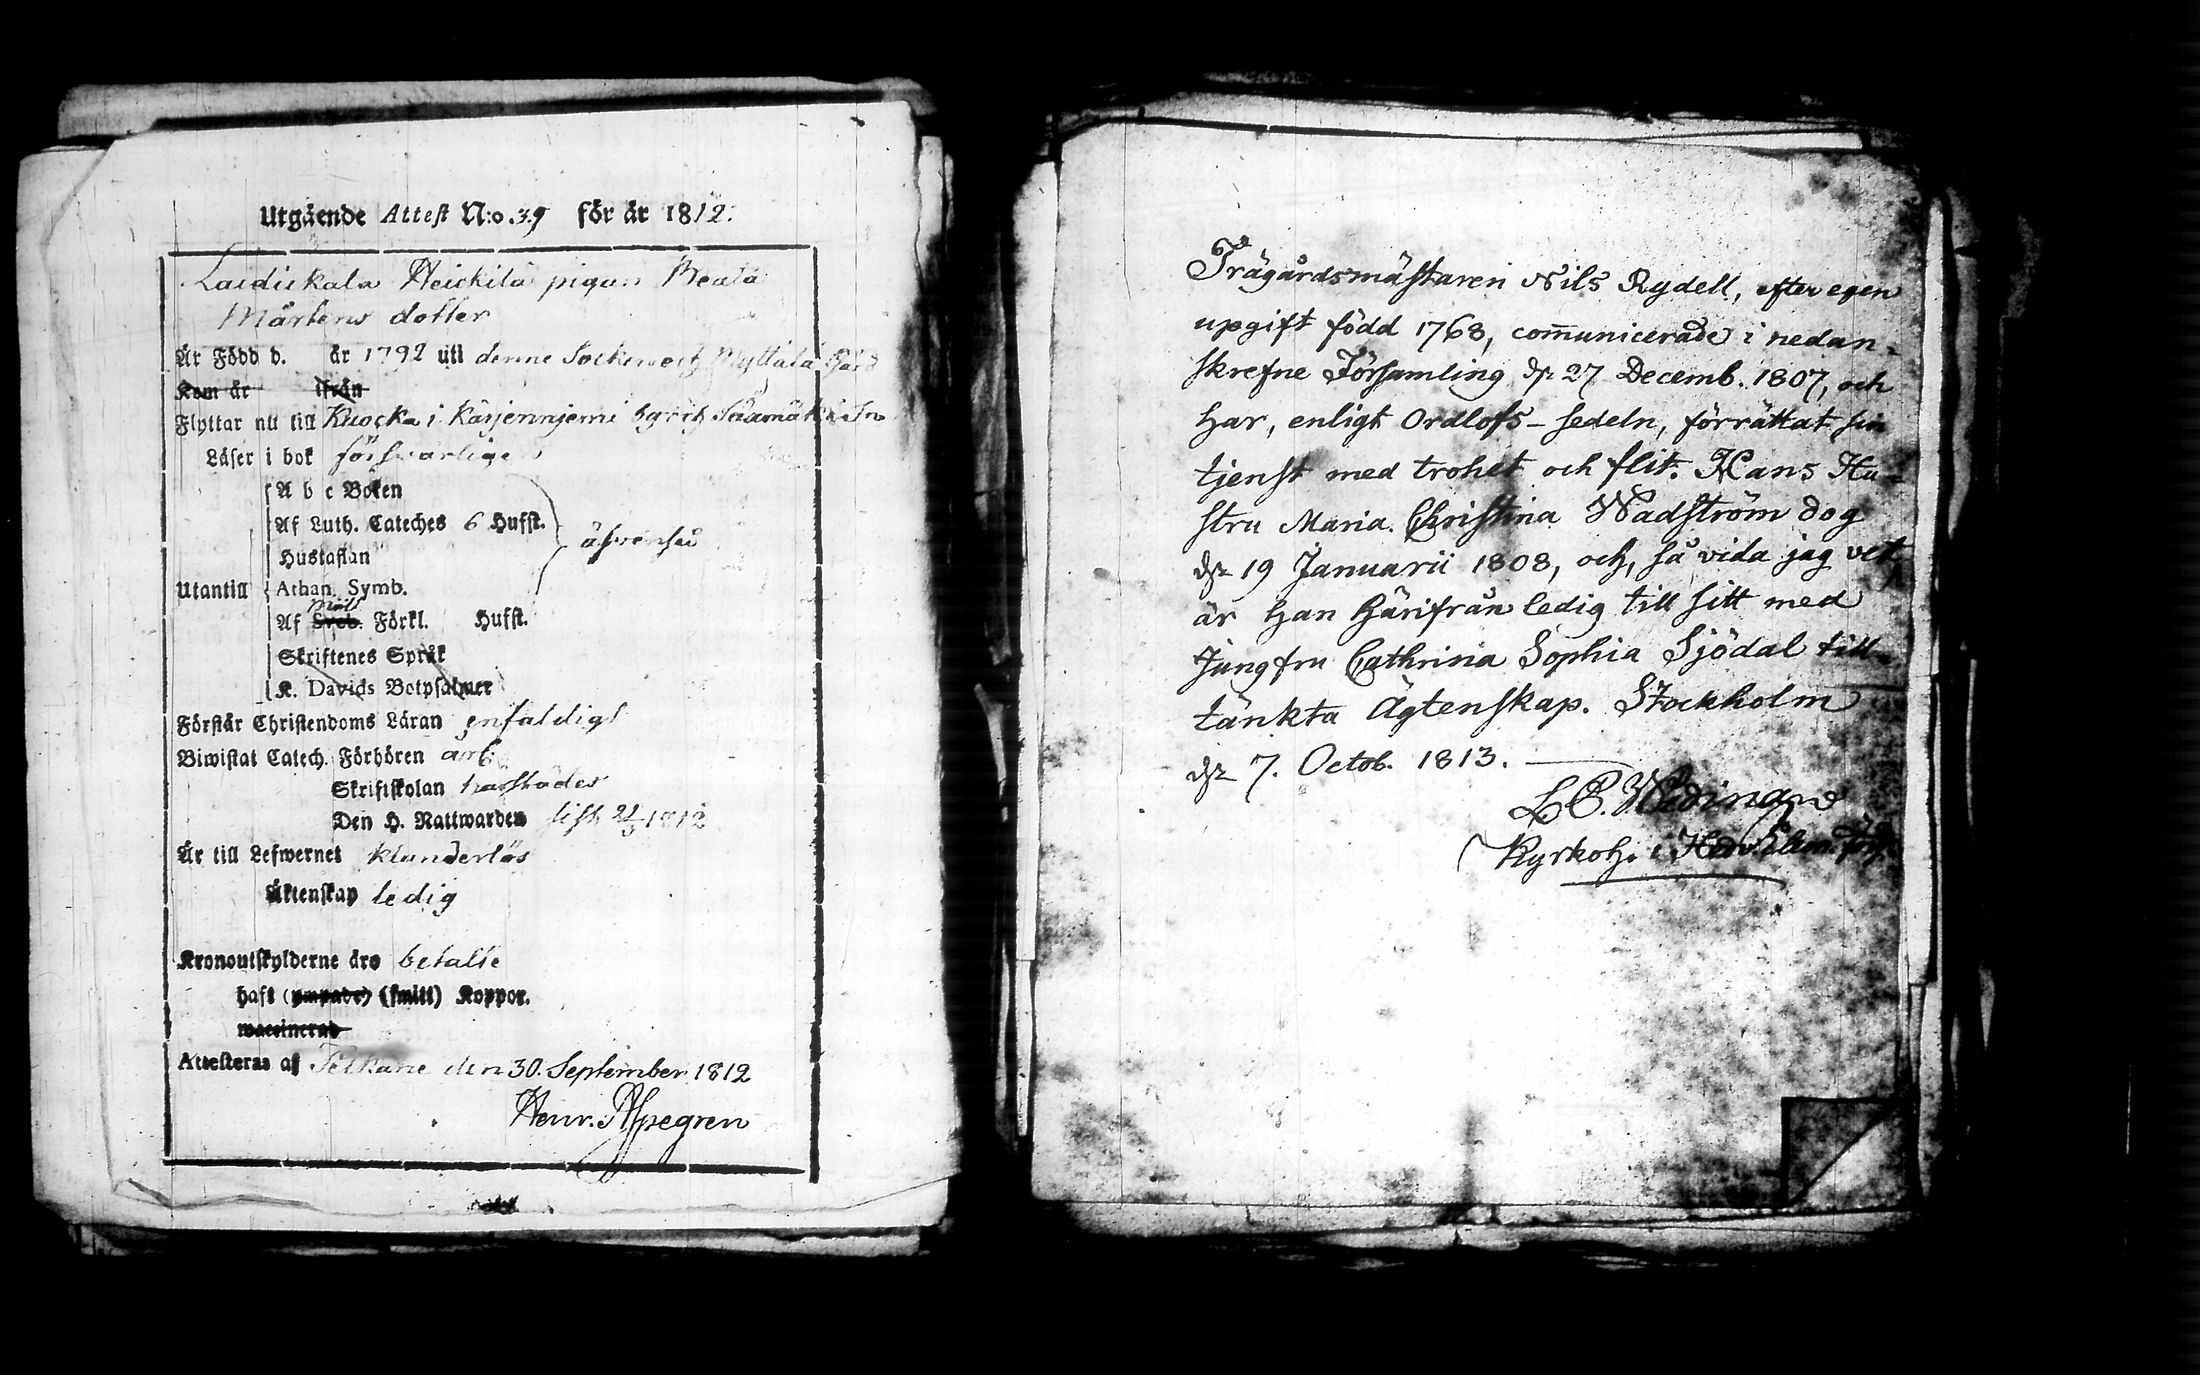 Utgående Attest N:o 39 för år 1812.
Laidickala Heickilä pigan Beata
Mårtens dotter
Är Född d. år 1792 uti denne Socken och
Kom år ifrån
Flyttar nu till Kuocka i Kärjennjemi by och Säxmäki Sn
Läser i bok försvarligen
A b c Boken
Af Luth. Cateches 6 Hufst.
Hustaflan
Utantill Athan. Symb.
Af Sveb. Förkl. Hufst.
Skriftenes Språk
K. Davids Botpsalmer
Förstår Christendoms Läran enfaldigt
Biwistat Catech. Förhören
Skriftskolan
Den H. Nattwarden sist 1812
Är till Lefwernet klanderlös
Äktenskap ledig
Kronoutskylderne äro betalte
haft (ympade) (smitt) Koppor.
waccinerad
Attesteras af Pelkäne den 30. September 1812
Henr. Aspegren
Trägårdsmästaren Nils Rydell, efter egen
upgift född 1768, com̄unicerade i nedan-
skrefne Församling d. 27 Decemb. 1807, och
har, enligt Ordlofs-sedeln, förrättat sin
tjenst med trohet och flit. Hans Hu-
stru Maria Christina Wadström dog
d. 19 Januarii 1808, och, så vida jag vet,
är han härifrån ledig till sitt med
Jungfru Cathrina Sophia Sjödal till-
tänkta Ägtenskap. Stockholm
d. 7. Octob. 1813.
Kyrkoh. i Hedv. Eleon. förs.